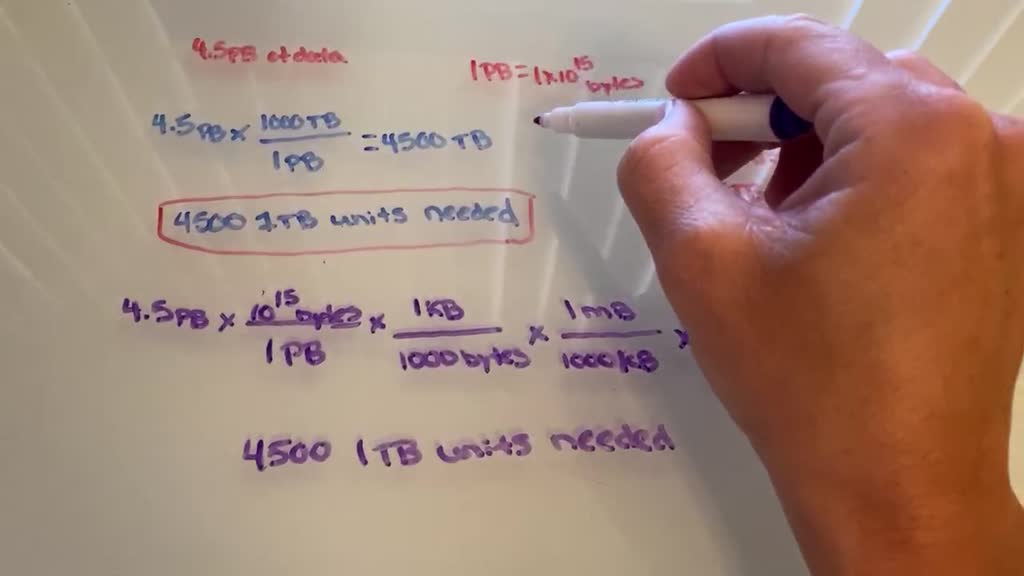 4.5PB of data
1PB = 1x10^15 bytes
4.5PB x 1000TB / 1PB = 4500 TB
4500 1TB units needed
4.5PB x 10^15 bytes / 1PB x 1KB / 1000 bytes x 1mB / 1000 KB x
4500 1TB units needed